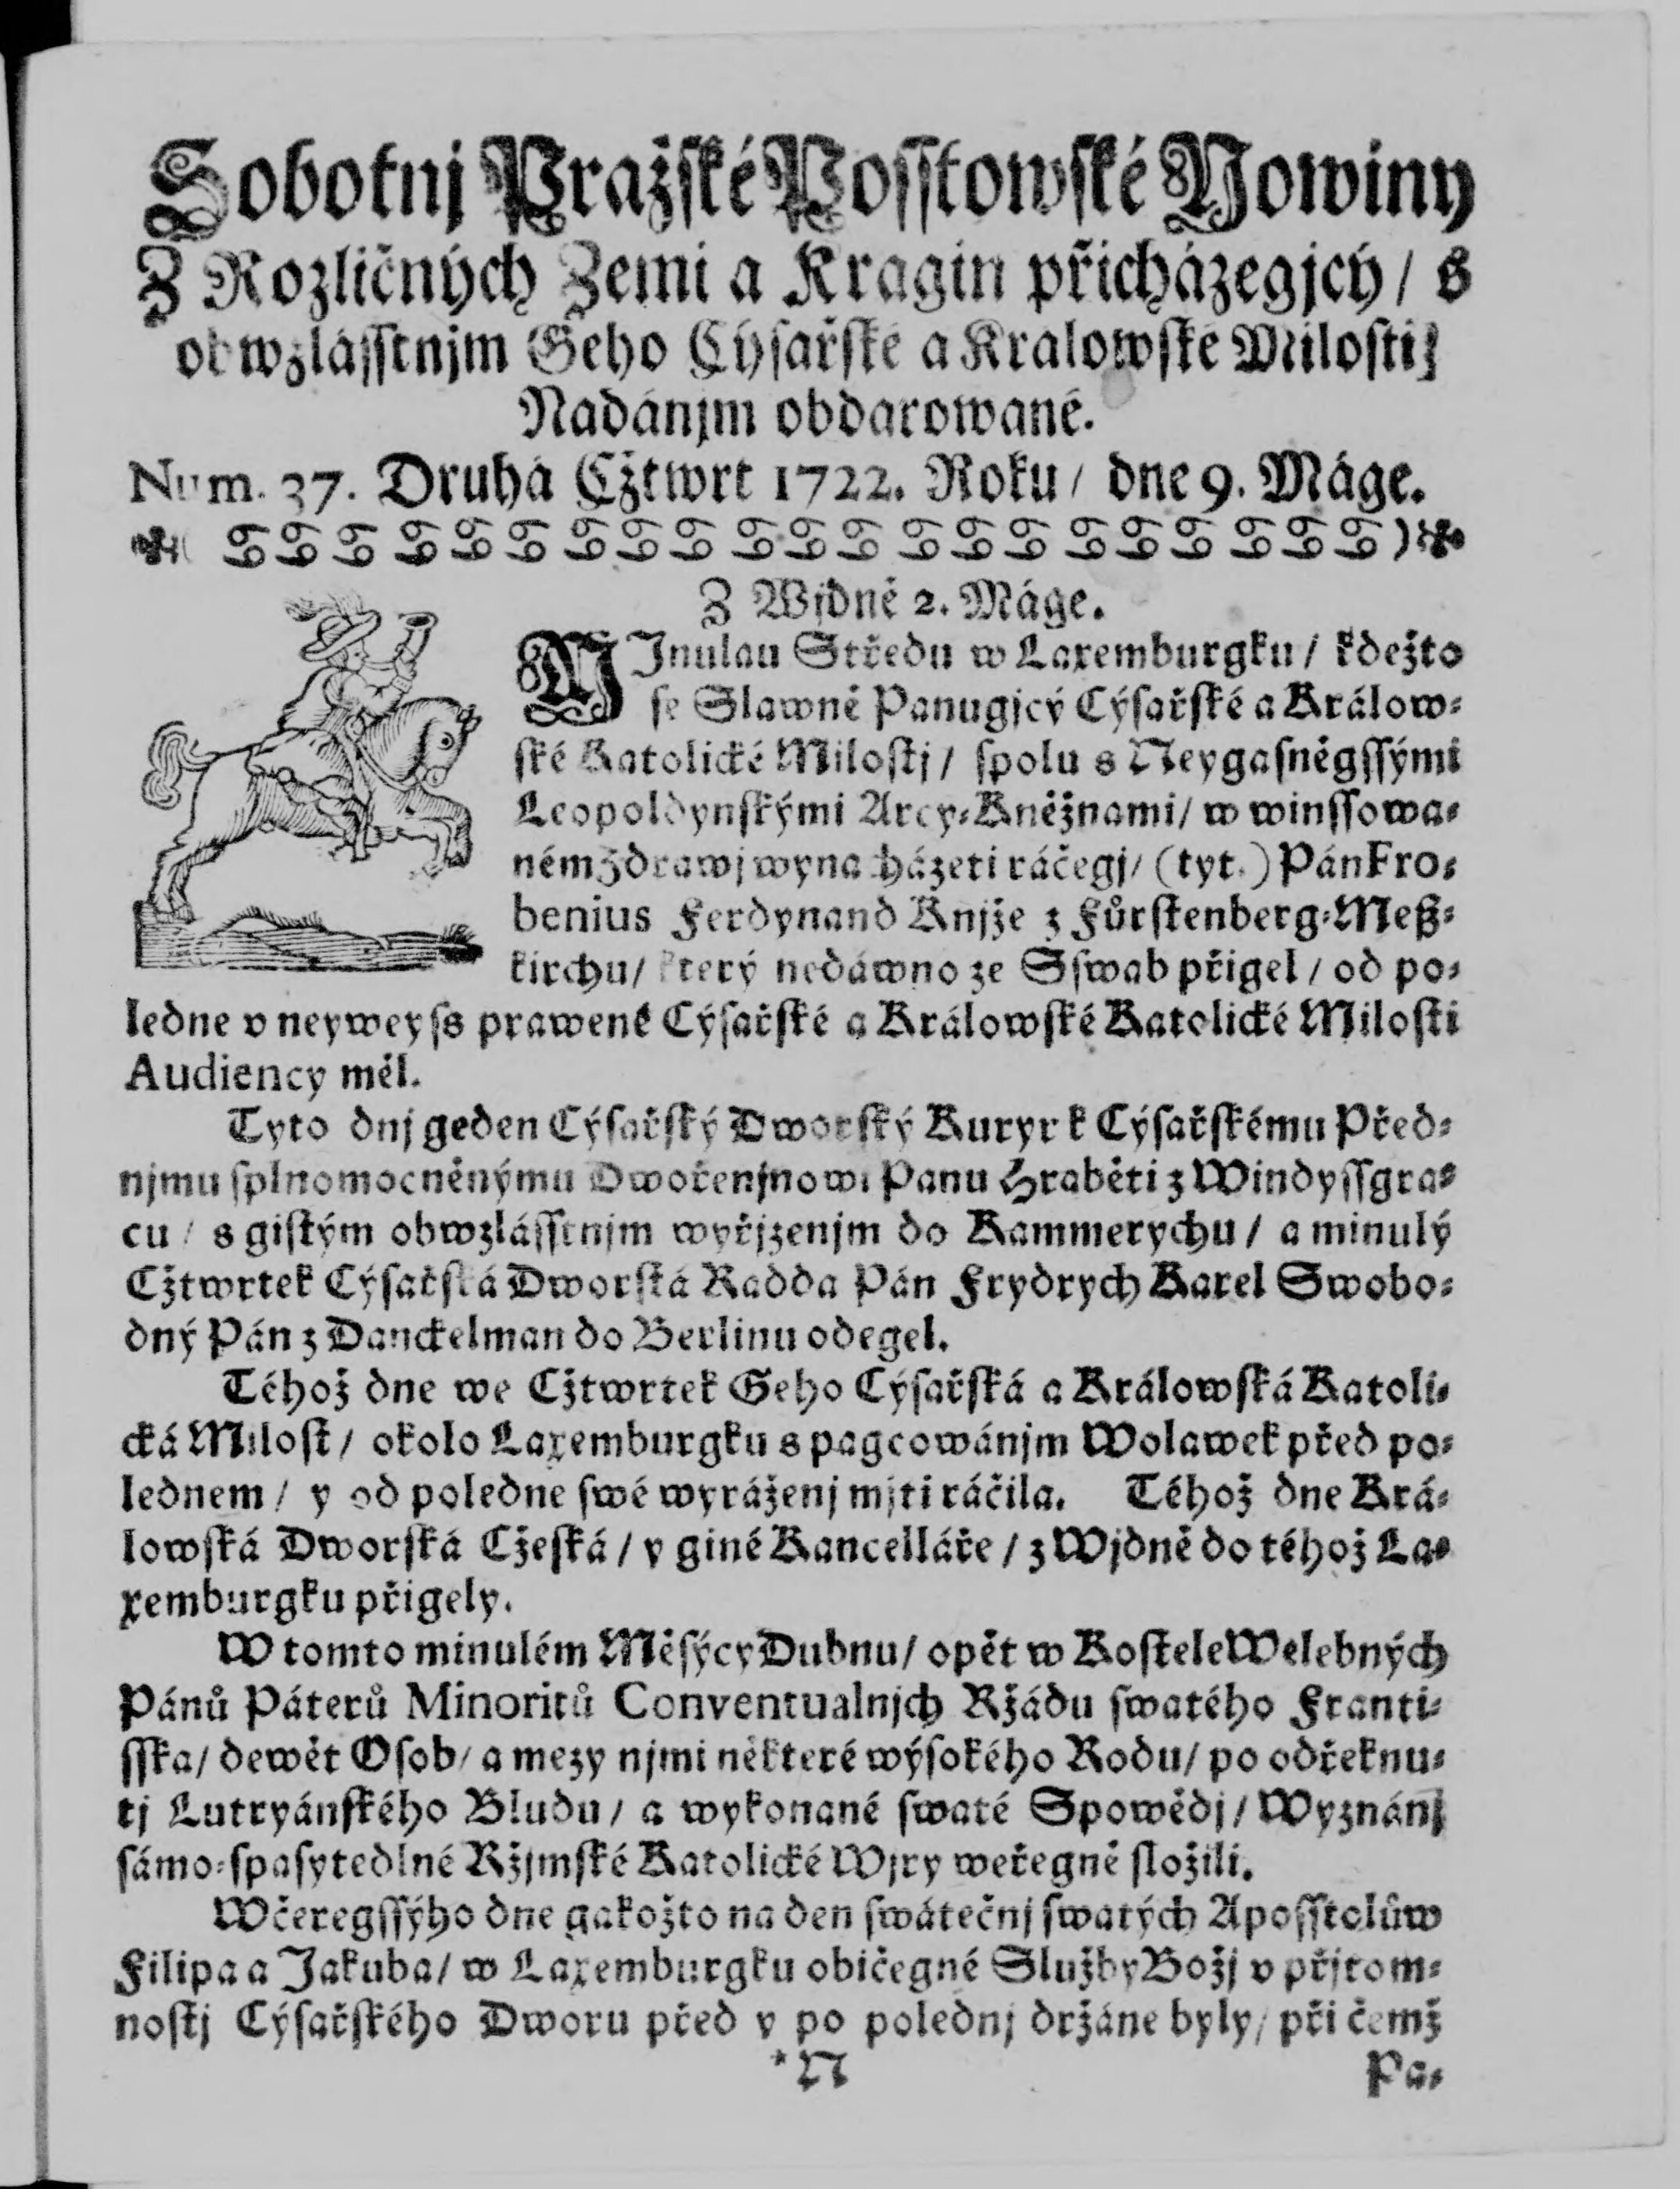 Sobotnj Pražské Posstowské Nowiny
Z Rozličných Zemi a Kragin přicházegjcý / s
obwzlásstnjm Geho Cýsařské a Kralowské Milosti
Nadánjm obdarowané.
Num. 37. Druhá Cžtwrt 1722. Roku / dne 9. Máge.
Z Wjdně 2. Máge.
MJnulau Středu w Laxemburgku / kdežto
se Slawně Panugjcý Cýsařské a Králow-
ské Katolické Milostj / spolu s Neygasněgssými
Leopoldynskými Arcy-Kněžnami / w winssowa-
ném Zdrawj wynacházeti ráčegj / (tyt.) Pán Fro-
benius Ferdynand Knjže z Fůrstenberg-Meß-
kirchu / který nedáwno ze Sswab přigel / od po-
ledne v neyweyss prawené Cýsařské a Králowské Katolické Milosti
Audiency měl.
Tyto dnj geden Cýsařský Dworský Kuryr k Cýsařskému Před-
njmu splnomocněnýmu Dwořenjnowi Panu Hraběti z Windyssgra-
cu / s gistým obwzlásstnjm wyřjzenjm do Kammerychu / a minulý
Cžtwrtek Cýsařská Dworská Radda Pán Frydrych Karel Swobo-
dný Pán z Danckelman do Berlinu odegel.
Téhož dne we Cžtwrtek Geho Cýsařská a Králowská Katoli-
cká Milost / okolo Laxemburgku s pagcowánjm Wolawek před po-
lednem / y od poledne swé wyráženj mjti ráčila. Téhož dne Krá-
lowská Dworská Cžeská / y giné Kancelláře / z Wjdně do téhož La-
xemburgku přigely.
W tomto minulém Měsýcy Dubnu / opět w Kostele Welebných
Pánů Páterů Minoritů Conventualnjch Ržádu swatého Franti-
sska / dewět Osob / a mezy njmi některé wýsokého Rodu / po odřeknu-
tj Lutryánského Bludu / a wykonané swaté Spowědj / Wyznánj
sámo-spasytedlné Ržjmské Katolické Wjry weřegně složili.
Wčeregssýho dne gakožto na den swátečnj swatých Aposstolůw
Filipa a Jakuba / w Laxemburgku običegné Služby Božj v přjtom-
nostj Cýsařského Dworu před y po polednj držáne byly / při čemž
*N
Pa-